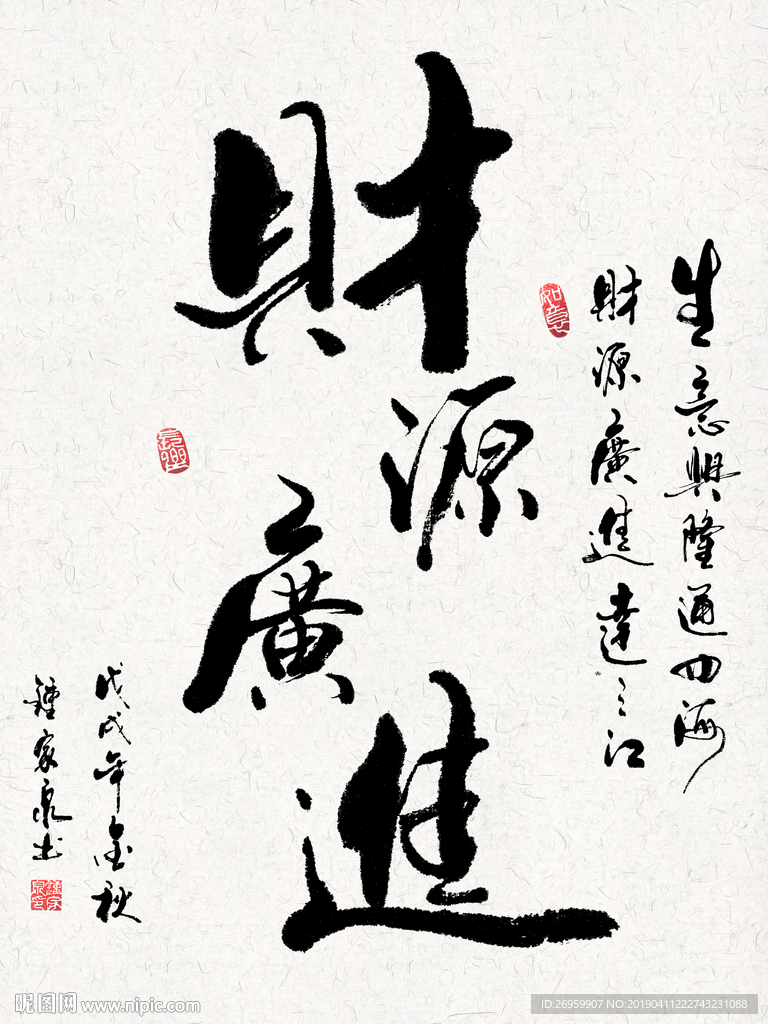 財源廣進
生意興隆通四海
財源廣進達三江
如意
長樂
戊戌年金秋
鍾家泉书
昵图网 www.nipic.com
ID:26959907 NO:20190411222743231088